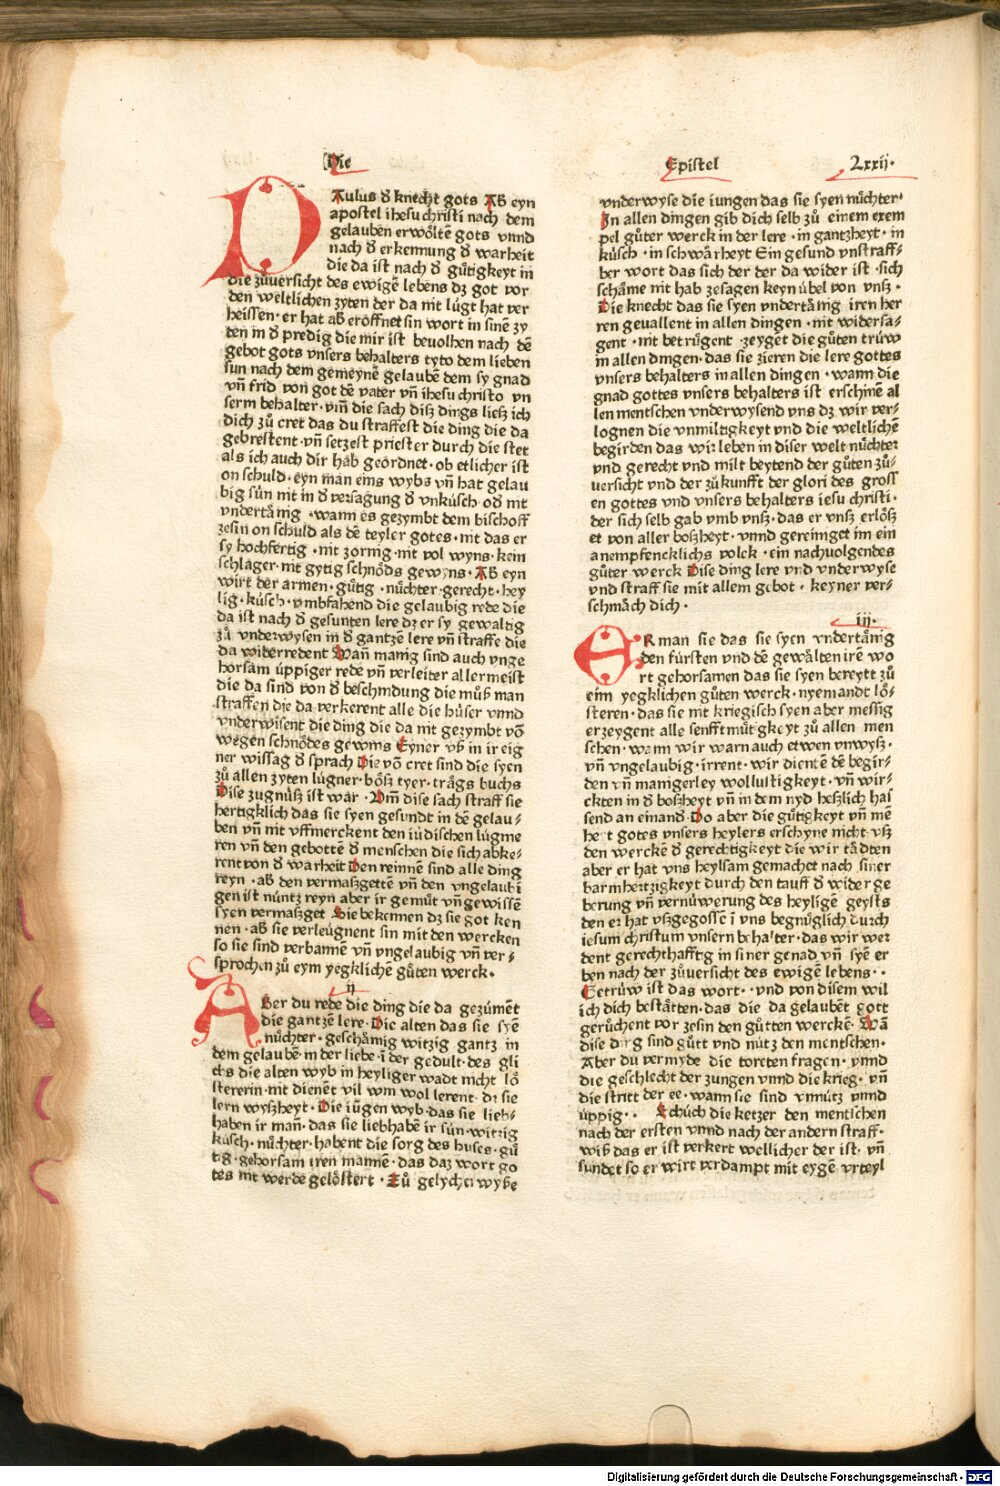 Die
Epistel
Lxxij·
PAulus ď knecht gots Ab eyn
apostel ihesu christi nach dem
gelauben erwölte gots vnnd
nach ď erkennung ď warheit
die da ist nach ď gůtigkeyt in
die zůversicht des ewigē lebens dz got vor
den weltlichen zyten der da nit lúgt hat ver
heissen· er hat ab eröffnet sin wort in sinē zy
ten in ď predig die mir ist beuolhen nach dē
gebot gots vnsers behalters tyto dem lieben
sun nach dem gemeynē gelaubē dem sy gnad
vñ frid von got dē vater vñ ihesu christo vn
serm behalter· vm̄ die sach disz dings liesz ich
dich zů cret das du straffest die ding die da
gebrestent· vñ setzest priester durch die stet
als ich auch dir hab geordnet· ob etlicher ist
on schuld· eyn man eins wybs vñ hat gelau
big sún nit in ď versagung ď vnkúsch· od̄ nit
vndertånig ·wann es gezymbt dem bischoff
zesin on schuld als dē teyler gotes· nit das er
sy hochfertig ·nit zornig·nit vol wyns·kein
schlager·nit gytig schnöds gewyns·Ab eyn
wirt der armen·gůtig ·nůchter·gerecht·hey
lig·kúsch·vmbfahend die gelaubig rede die
da ist nach ď gesunten lere dz er sy gewaltig
zů vnderwysen in ď gantzē lere vñ straffe die
da widerredent Wan̄ manig sind auch vnge
horsam úppiger rede vñ verleiter allermeist
die da sind von ď beschnidung die můß man
straffen die da verkerent alle die húser vnnd
vnderwisent die ding die da nit gezymbt vō
wegen schnödes gewins Eyner vß in ir eig
ner wissag ď sprach Die vō cret sind die syen
zů allen zyten lúgner·bösz tyer·trågs buchs
Dise zugnúsz ist war ·Vm̄ dise sach straff sie
hertigklich das sie syen gesundt in dē gelau-
ben vñ nit vffmerckent den iúdischen lúgme
ren vñ den gebottē ď menschen die sich abke-
rent von ď warheit Den reinnē sind alle ding
reyn ·ab den vermaszgetē vñ den vngelaubi
gen ist núntz reyn aber ir gemút vñ gewissē
syen vermaszget Sie bekennen dz sie got ken
nen·ab sie verleúgnent sin mit den wercken
so sie sind verbannē vñ vngelaubig vñ ver-
sprochen zů eym yegklichē gůten werck·
ij
ABer du rede die ding die da gezúmēt
die gantzē lere·Die alten das sie syē
nůchter·geschåmig witzig gantz in
dem gelaubē·in der liebe·ī der gedult·des gli
chs die alten wyb in heyliger wadt nicht lö
stererin·nit dienēt vil win wol lerent·dz sie
lern wyszheyt·Die iúgen wyb·das sie lieb-
haben ir man̄·das sie liebhabē ir sún·witzig
kúsch·nůchter·habent die sorg des huses·gů
tig·gehorsam iren mannē·das daz wort go
tes nit werde gelöstert·Zů gelycher wyße
vnderwyse die iungen das sie syen nůchter·
In allen dingen gib dich selb zů einem exem
pel gůter werck in der lere·in gantzheyt·in
kúsch·in schwårheyt Ein gesund vnstraff-
ber wort das sich der der da wider ist·sich
schåme nit hab zesagen keyn úbel von vnsz·
Die knecht das sie syen vndertånig iren her
ren geuallent in allen dingen·nit widersa-
gent·nit betrúgent·zeygēt die gůten trúw
in allen dingen·das sie zieren die lere gottes
vnsers behalters in allen dingen·wann die
gnad gottes vnsers behalters ist erschinē al
len mentschen vnderwysend vns dz wir ver-
lognen die vnmiltigkeyt vnd die weltlichē
begirden das wir leben in diser welt nůchter
vnd gerecht vnd milt beytend der gůten zů-
versicht vnd der zůkunfft der glori des gross
en gottes vnd vnsers behalters iesu christi·
der sich selb gab vmb vnsz·das er vnsz erlösz
et von aller boszheyt·vnnd gereinget im ein
anempfencklichs volck·ein nachuolgendes
gůter werck Dise ding lere vnd vnderwyse
vnd straff sie mit allem gebot·keyner ver-
schmåch dich·
iij·
ERman sie das sie syen vndertånig
den fúrsten vnd dē gewålten irē wo
rt gehorsamen das sie syen bereytt zů
eim yegklichen gůten werck·nyemandt lö-
steren·das sie nit kriegisch syen aber messig
erzeygent alle senfftmútigkeyt zů allen men
schen·wann wir warn auch etwen vnwysz·
vñ vngelaubig·irrent·wir dientē dē begir-
den vñ manigerley wollustigkeyt·vñ wir-
ckten in ď boszheyt vñ in dem nyd heszlich has
send an einand̄·Do aber die gůtigkeyt vñ mē
heit gotes vnsers heylers erschyne nicht vsz
den werckē ď gerechtigkeyt die wir tådten
aber er hat vns heylsam gemachet nach siner
barmhertzigkeyt durch den tauff ď widerge
berung vñ vernúwerung des heyligē geysts
den er hat vszgegossē ī vns begnůglich durch
iesum christum vnsern behalter·das wir wer
dent gerechthafftig in siner genad vñ syē er
ben nach der zůversicht des ewigē lebens··
Getrúw ist das wort··vnd von disem wil
ich dich beståtten·das die da gelaubēt gott
gerůchent vor zesin den gůtten werckē·Wā
dise ding sind gůtt vnd nútz den mentschen·
Aber du vermyde die toreten fragen·vnnd
die geschlecht der zungen vnnd die krieg·vñ
die stritt der ee·wann sie sind vnnútz vnnd
úppig·· Schúch die ketzer den mentschen
nach der ersten vnnd nach der andern straff·
wiß das er ist verkert wellicher der ist·vñ
sundet so er wirt verdampt mit eygē vrteyl
Digitalisierung gefördert durch die Deutsche Forschungsgemeinschaft · DFG